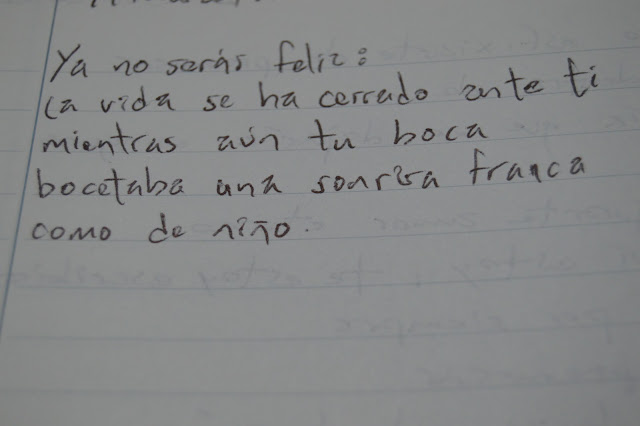 Ya no serás feliz:
La vida se ha cerrado ante ti
mientras aún tu boca
bocetaba una sonrisa franca
como de niño.